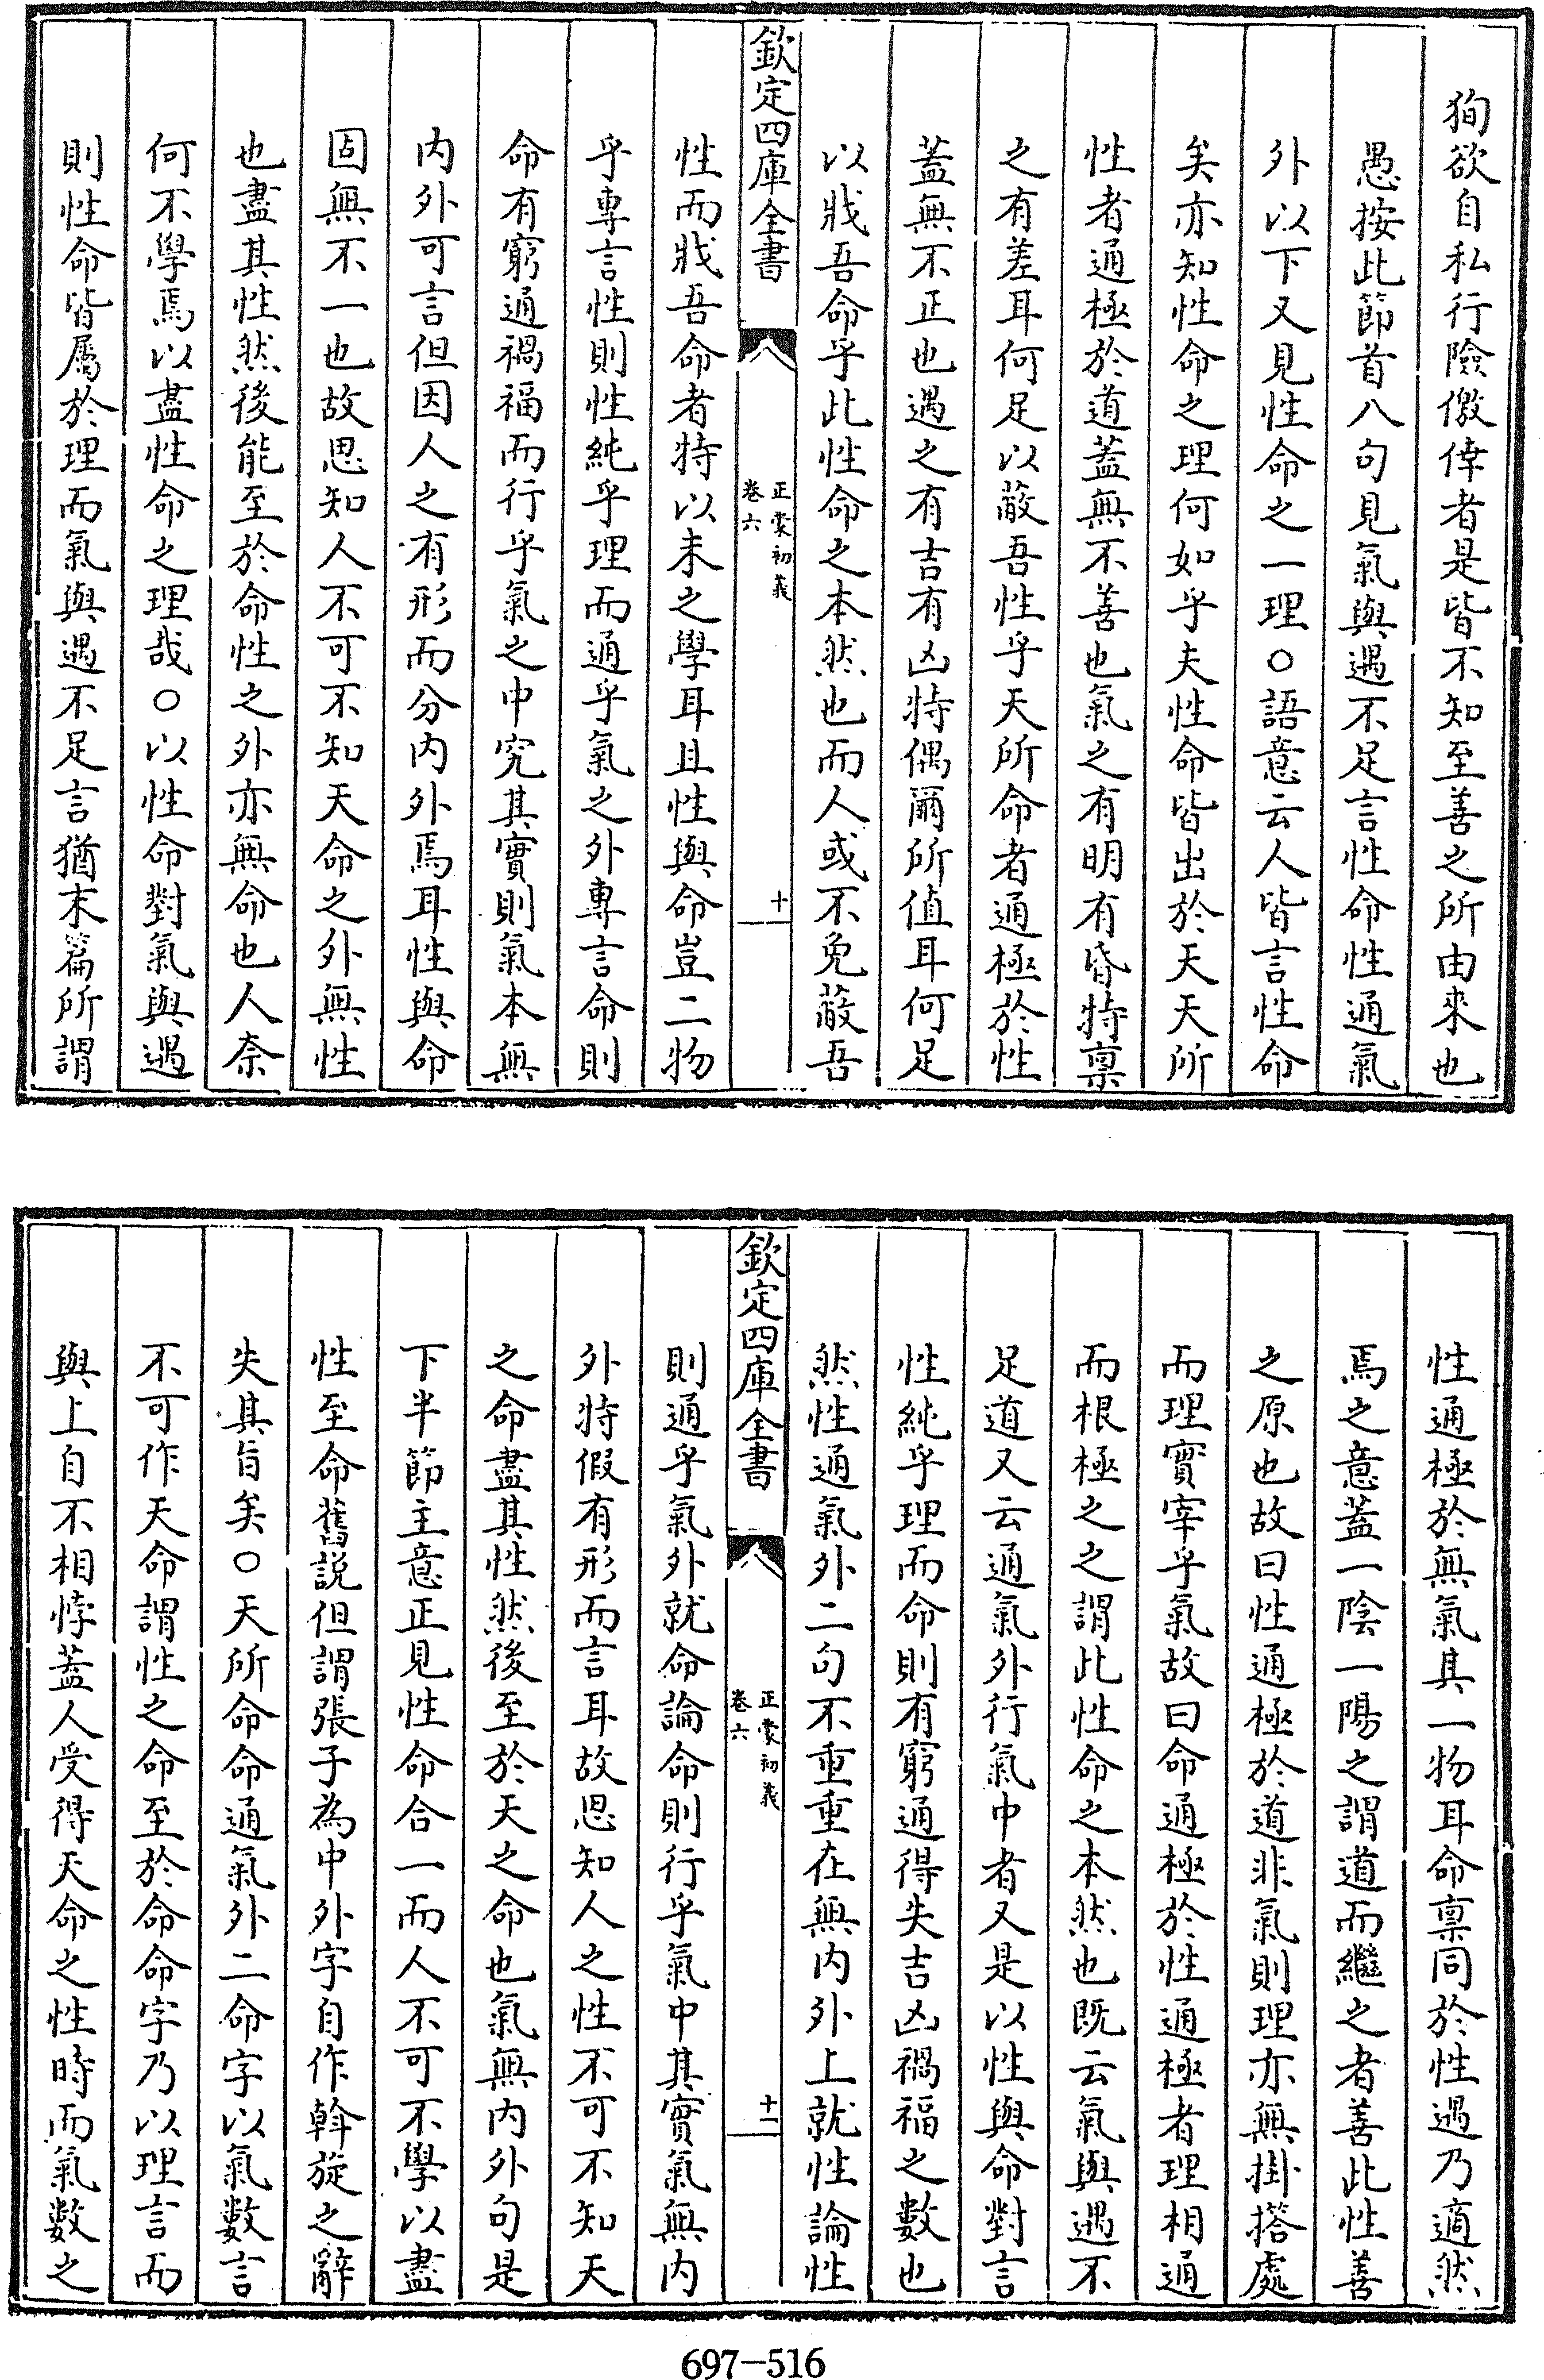 狥欲自私行險儌倖者是皆不知至善之所由來也
愚按此節首八句見氣與遇不足言性命性通氣
外以下又見性命之一理○語意云人皆言性命
矣亦知性命之理何如乎夫性命皆出於天天所
性者通極於道蓋無不善也氣之有明有昏特稟
之有差耳何足以蔽吾性乎天所命者通極於性
蓋無不正也遇之有吉有凶特偶爾所值耳何足
以戕吾命乎此性命之本然也而人或不免蔽吾
欽定四庫全書
正蒙初義
卷六
十
性而戕吾命者特以未之學耳且性與命豈二物
乎專言性則性純乎理而通乎氣之外專言命則
命有窮通禍福而行乎氣之中究其實則氣本無
内外可言但因人之有形而分内外焉耳性與命
固無不一也故思知人不可不知天命之外無性
也盡其性然後能至於命性之外亦無命也人奈
何不學焉以盡性命之理哉○以性命對氣與遇
則性命皆屬於理而氣與遇不足言猶末篇所謂
性通極於無氣其一物耳命稟同於性遇乃適然
焉之意蓋一陰一陽之謂道而繼之者善此性善
之原也故曰性通極於道非氣則理亦無掛搭處
而理實宰乎氣故曰命通極於性通極者理相通
而根極之之謂此性命之本然也既云氣與遇不
足道又云通氣外行氣中者又是以性與命對言
性純乎理而命則有窮通得失吉凶禍福之數也
然性通氣外二句不重重在無内外上就性論性
欽定四庫全書
正蒙初義
卷六
十一
則通乎氣外就命論命則行乎氣中其實氣無内
外特假有形而言耳故思知人之性不可不知天
之命盡其性然後至於天之命也氣無内外句是
下半節主意正見性命合一而人不可不學以盡
性至命舊說但謂張子為中外字自作斡旋之辭
失其旨矣○天所命命通氣外二命字以氣數言
不可作天命謂性之命至於命命字乃以理言而
與上自不相悖蓋人受得天命之性時而氣數之
697-516